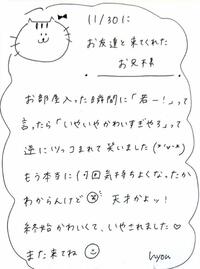 11/30に
お友達と来てくれた
お兄様
お部屋入った瞬間に「若ー！」って
言ったら「いやいやかわいすぎやろ」って
逆にツッコまれて笑いました(*'∪'*)
もう本当に何回気持ちよくなったか
わからんけど 天才かよッ！
終始かわいくて、いやされました♡
また来てね
hyou